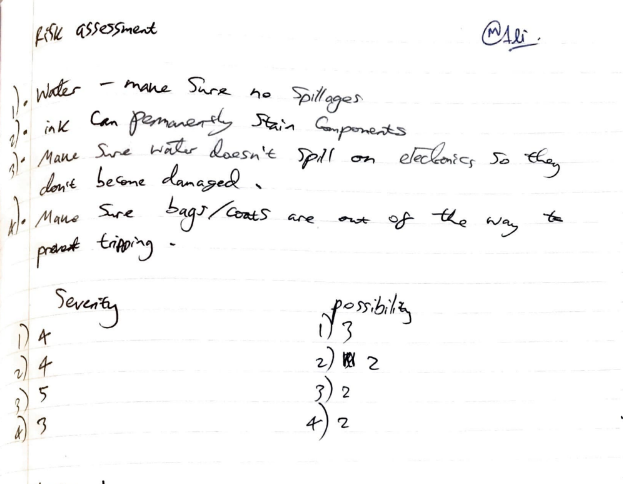 Risk assessment
Ali.
1). Water - make Sure no Spillages
2). ink Can permanently Stain Components
3). Make Sure water doesn't Spill on electronics So they
don't become damaged.
4). Make Sure bags/coats are out of the way to
prevent tripping.
Severity
possibility
1) 4
1) 3
2) 4
2) 2
3) 5
3) 2
4) 3
4) 2